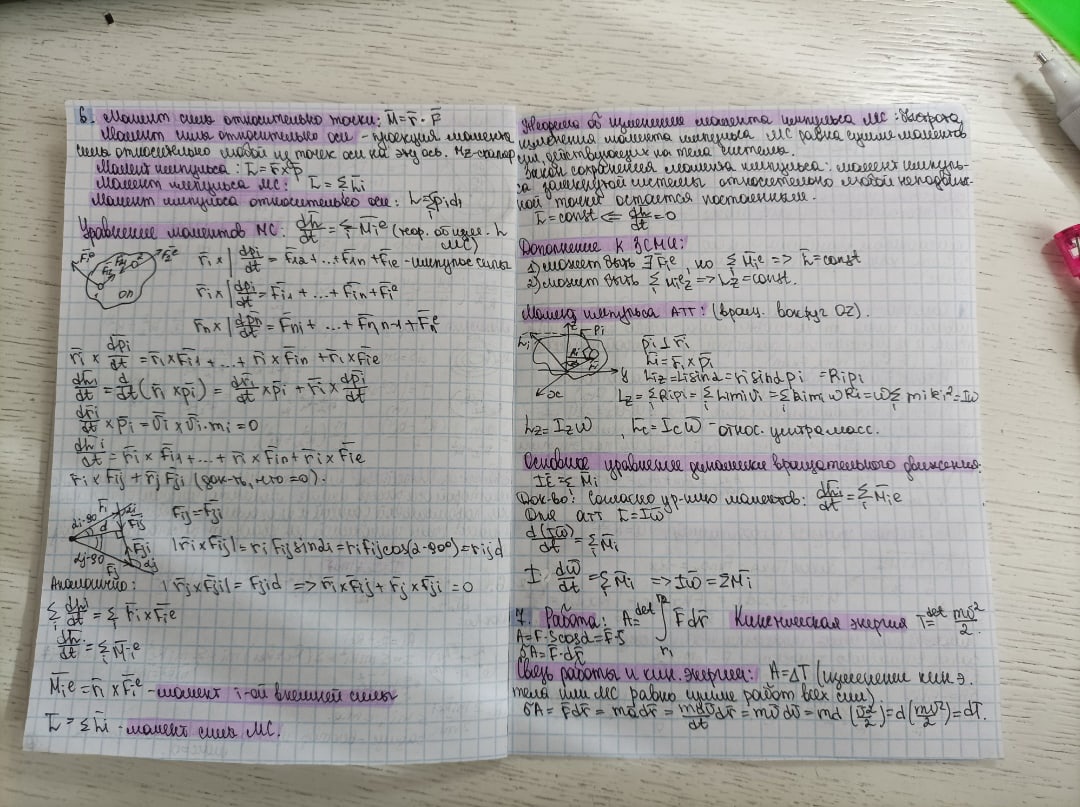 6. Момент силы относительно точки: M̄ = r̄ · F̄
Момент силы относительно оси - проекция момента
силы относительно любой из точек оси на эту ось. Mz-скаляр
Момент импульса: L̄ = r̄ × p̄
Момент импульса МС: L̄ = Σ L̄i
Момент импульса относительно оси: L = Σ pi di
Уравнение моментов МС: dL̄/dt = Σ M̄i^e (теор. об изм. L
МС)
r̄1 × | dp̄1/dt = F̄12 + ... + F̄1n + F̄1e - импульс силы
r̄i × | dp̄i/dt = F̄i1 + ... + F̄in + F̄i^e
r̄n × | dp̄n/dt = F̄n1 + ... + F̄n n-1 + F̄n^e
r̄i × dp̄i/dt = r̄i × F̄i1 + ... + r̄i × F̄in + r̄i × F̄ie
dL̄i/dt = d/dt (r̄i × p̄i) = dr̄i/dt × p̄i + r̄i × dp̄i/dt
dr̄i/dt × p̄i = v̄i × v̄i · mi = 0
dL̄i/dt = r̄i × F̄i1 + ... + r̄i × F̄in + r̄i × F̄ie
r̄i × F̄ij + r̄j F̄ji (док-ть, что = 0).
Fij = Fji
|r̄i × F̄ij| = ri Fij sin αi = ri Fij cos(α-90°) = rijd
Аналогично: |r̄j × F̄ji| = Fjid => r̄i × F̄ij + r̄j × F̄ji = 0
Σ dL̄i/dt = Σ r̄i × F̄i^e
dL̄/dt = Σ M̄i^e
M̄i^e = r̄i × F̄i^e - момент i-ой внешней силы
L̄ = Σ L̄i - момент силы МС.
Теорема об изменении момента импульса МС: Скорость
изменения момента импульса МС равна сумме моментов
сил, действующих на тела системы.
Закон сохранения момента импульса: момент импуль-
са замкнутой системы относительно любой неподвиж-
ной точки остается постоянным.
L̄ = const <= dL̄/dt = 0
Дополнение к ЗСМИ:
1) может быть ∃ F̄i^e, но Σ M̄i^e => L̄ = const
2) может быть Σ Mi^e z => Lz = const.
Момент импульса АТТ: (вращ. вокруг OZ).
p̄i ⊥ r̄i
L̄i = r̄i × p̄i
Liz = Li sin α = ri sin α pi = Ri pi
Lz = Σ Ri pi = Σ Ri mi vi = Σ Ri mi ω Ri = ω Σ mi Ri² = Iω
Lz = Iz ω̄ L̄c = Ic ω̄ - относ. центра масс.
Основное уравнение динамики вращательного движения:
Iε̄ = Σ M̄i
Док-во: Согласно ур-нию моментов: dL̄/dt = Σ M̄ie
Для АТТ L̄ = Iω̄
d(Iω̄)/dt = Σ M̄i
I · dω̄/dt = Σ M̄i => Iω̄ = Σ M̄i
7. Работа: A =^det ∫ F̄ dr̄ Кинетическая энергия T =^det mv²/2.
A = F · S cos α = F̄ · S̄
δA = F̄ · dr̄
Связь работы и кин. энергии: A = ΔT (изменение кин. э.
тела или МС равно сумме работ всех сил)
δA = F̄ dr̄ = mā dr̄ = m dv̄/dt dr̄ = mv̄ dv̄ = md (v̄²/2) = d(mv²/2) = dT.